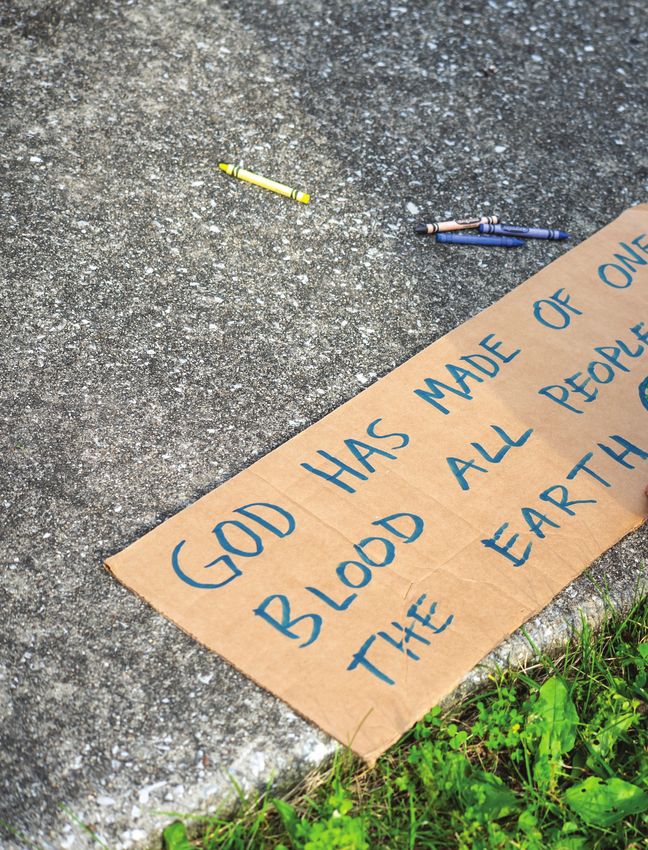 GOD HAS MADE OF ONE
BLOOD ALL PEOPLE
THE EARTH